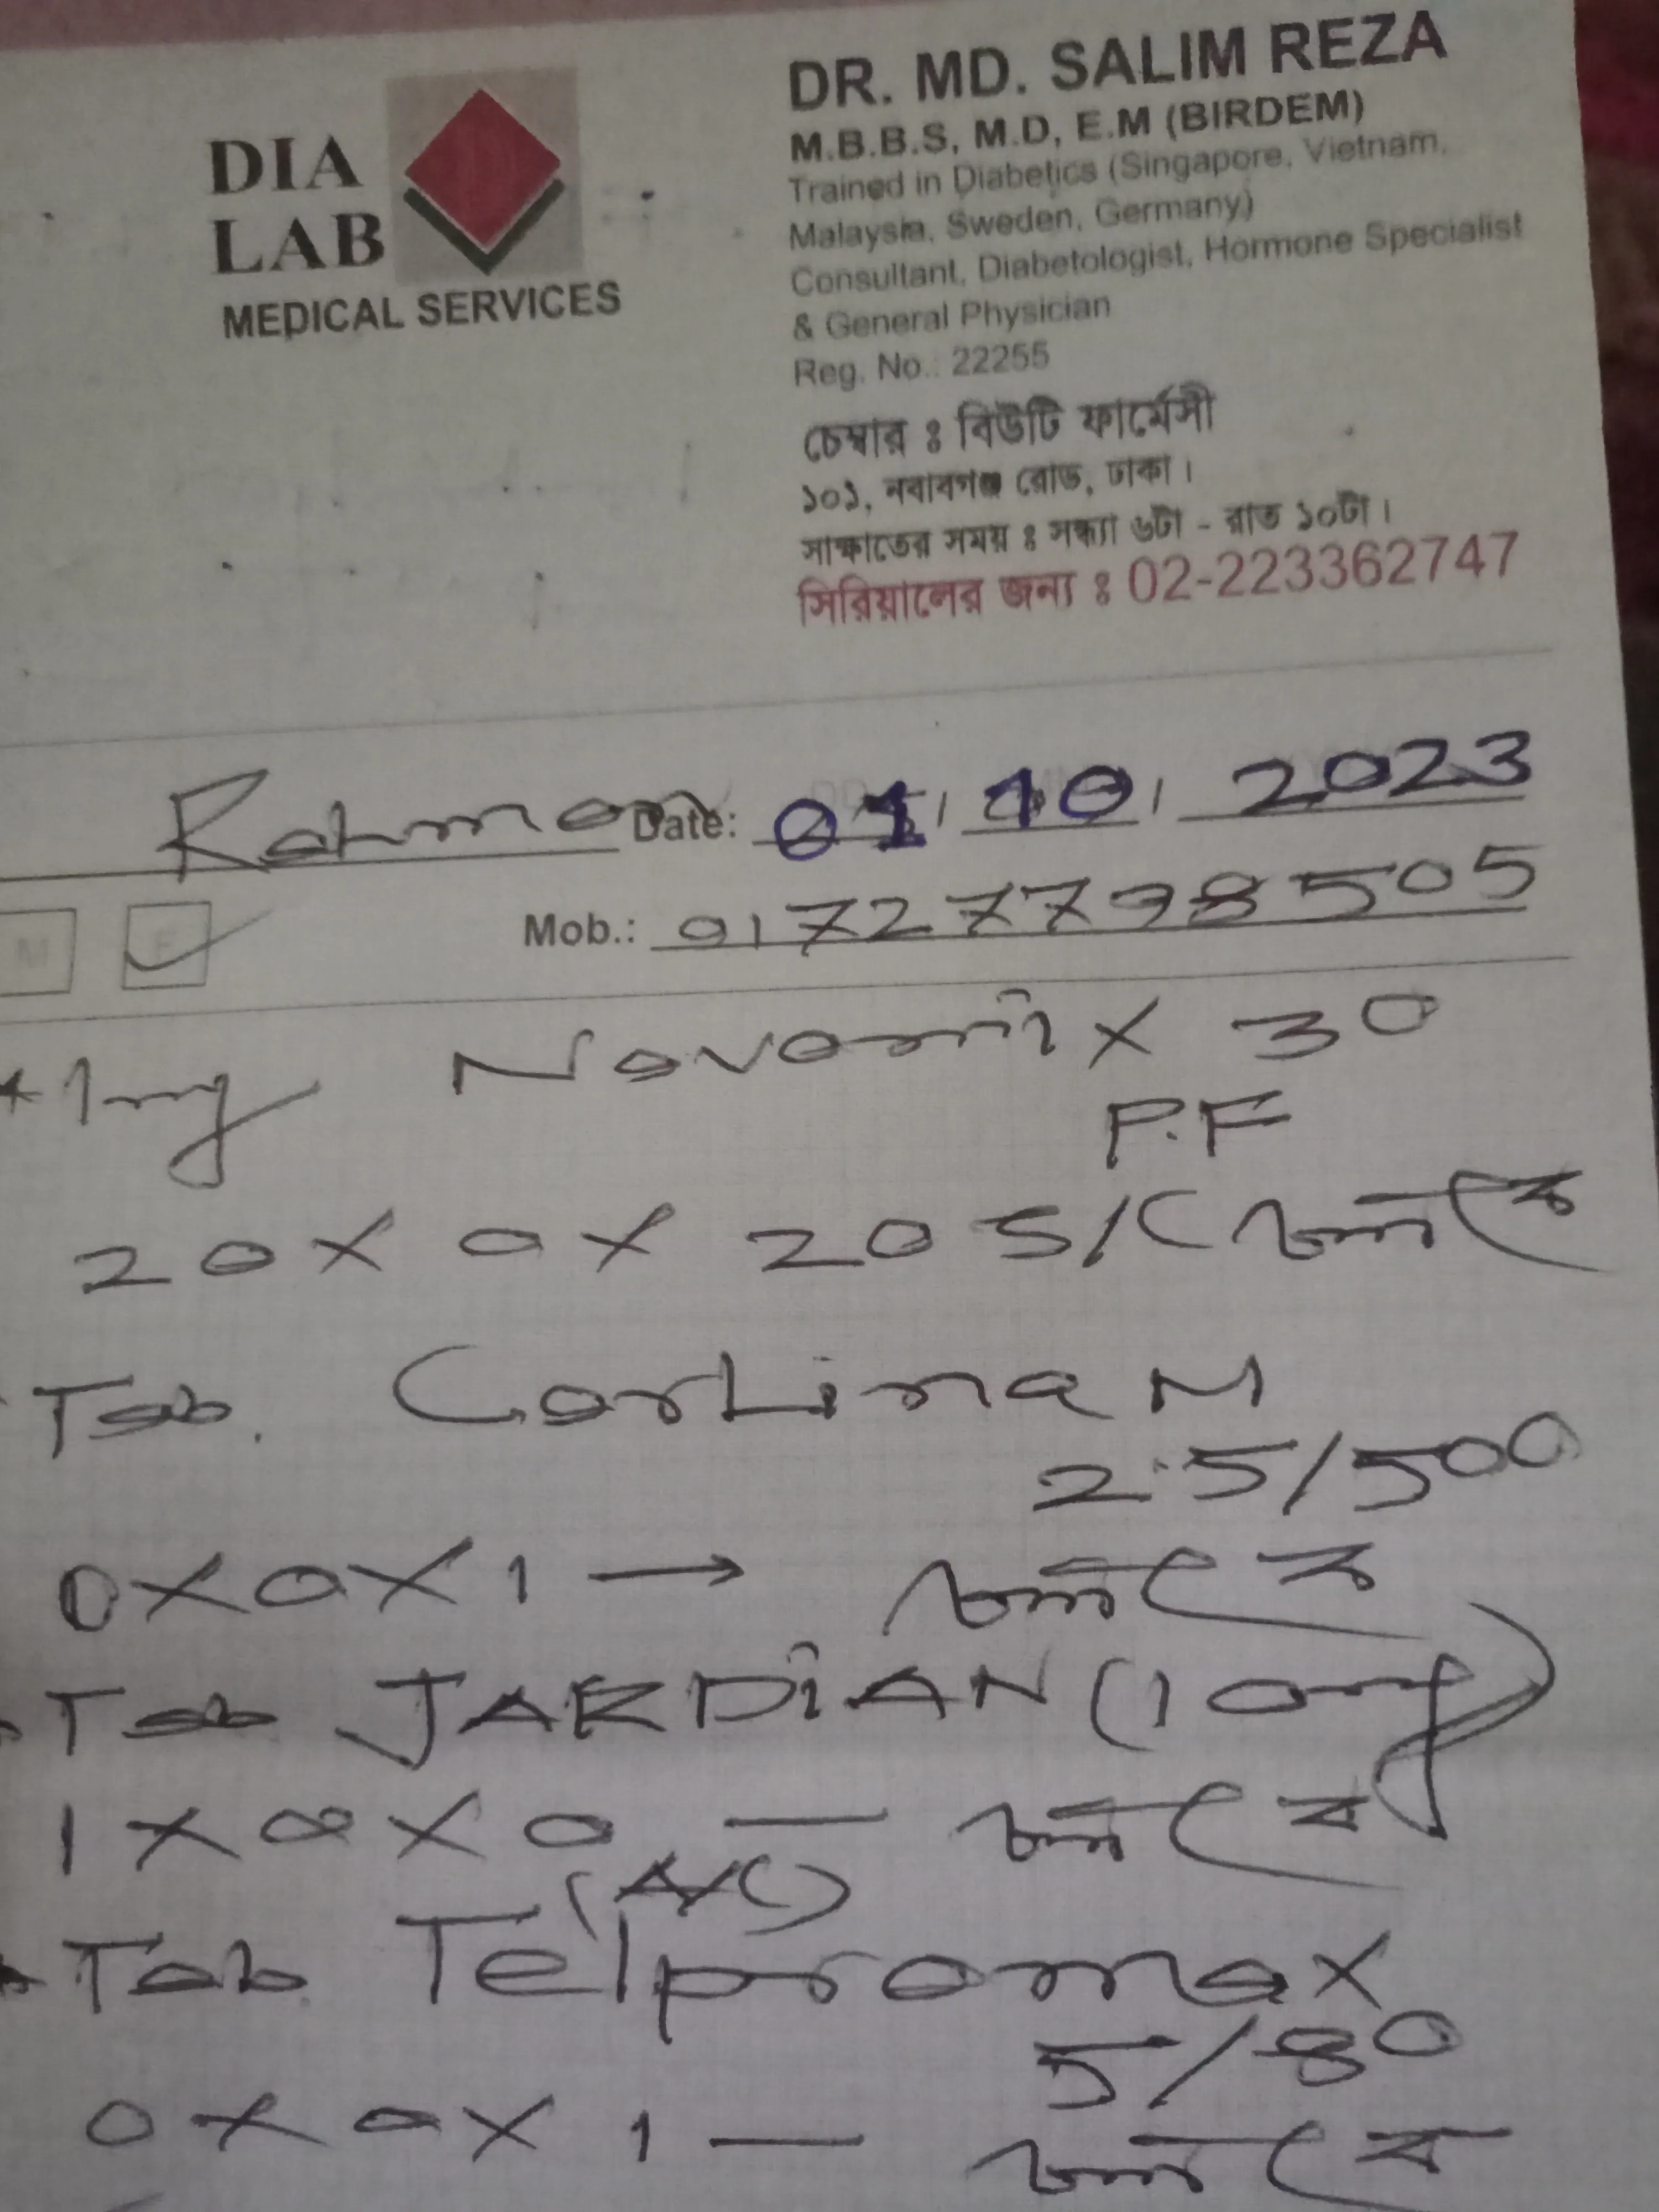 DIA
LAB
MEDICAL SERVICES
DR. MD. SALIM REZA
M.B.B.S, M.D, E.M (BIRDEM)
Trained in Diabetics (Singapore, Vietnam,
Malaysia, Sweden, Germany)
Consultant, Diabetologist, Hormone Specialist
& General Physician
Reg. No.: 22255
চেম্বার ঃ বিউটি ফার্মেসী
১০১, নবাবগঞ্জ রোড, ঢাকা।
সাক্ষাতের সময় ঃ সন্ধ্যা ৬টা - রাত ১০টা।
সিরিয়ালের জন্য ঃ 02-223362747
Rahman Date: 01/10/2023
M F Mob.: 01727798505
Inj Novomix 30
P.F
20 X 0 X 20 S/C চলবে
Tab. Carlina M
2.5/500
0 X 0 X 1 → চলবে
Tab JARDIAN (10mg)
1 X 0 X 0 — চলবে
(A/C)
Tab. Telpromax
5/80
0 X 0 X 1 — চলবে